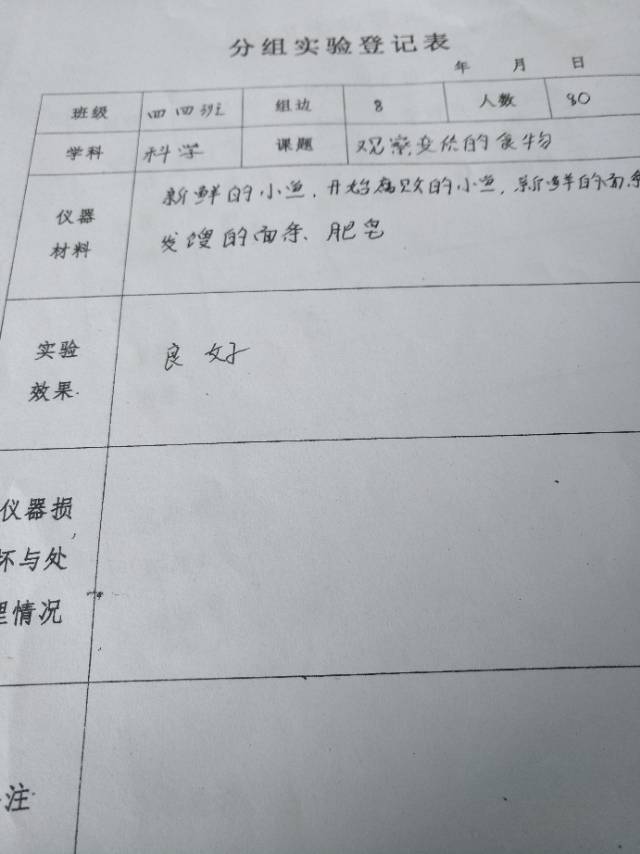 分组实验登记表
年 月 日
班级 四四班 组边 8 人数 80
学科 科学 课题 观察变质的食物
仪器材料 新鲜的小鱼、开始腐败的小鱼,新鲜的面条
发馊的面条、肥皂
实验效果 良好
仪器损
坏与处
理情况
注